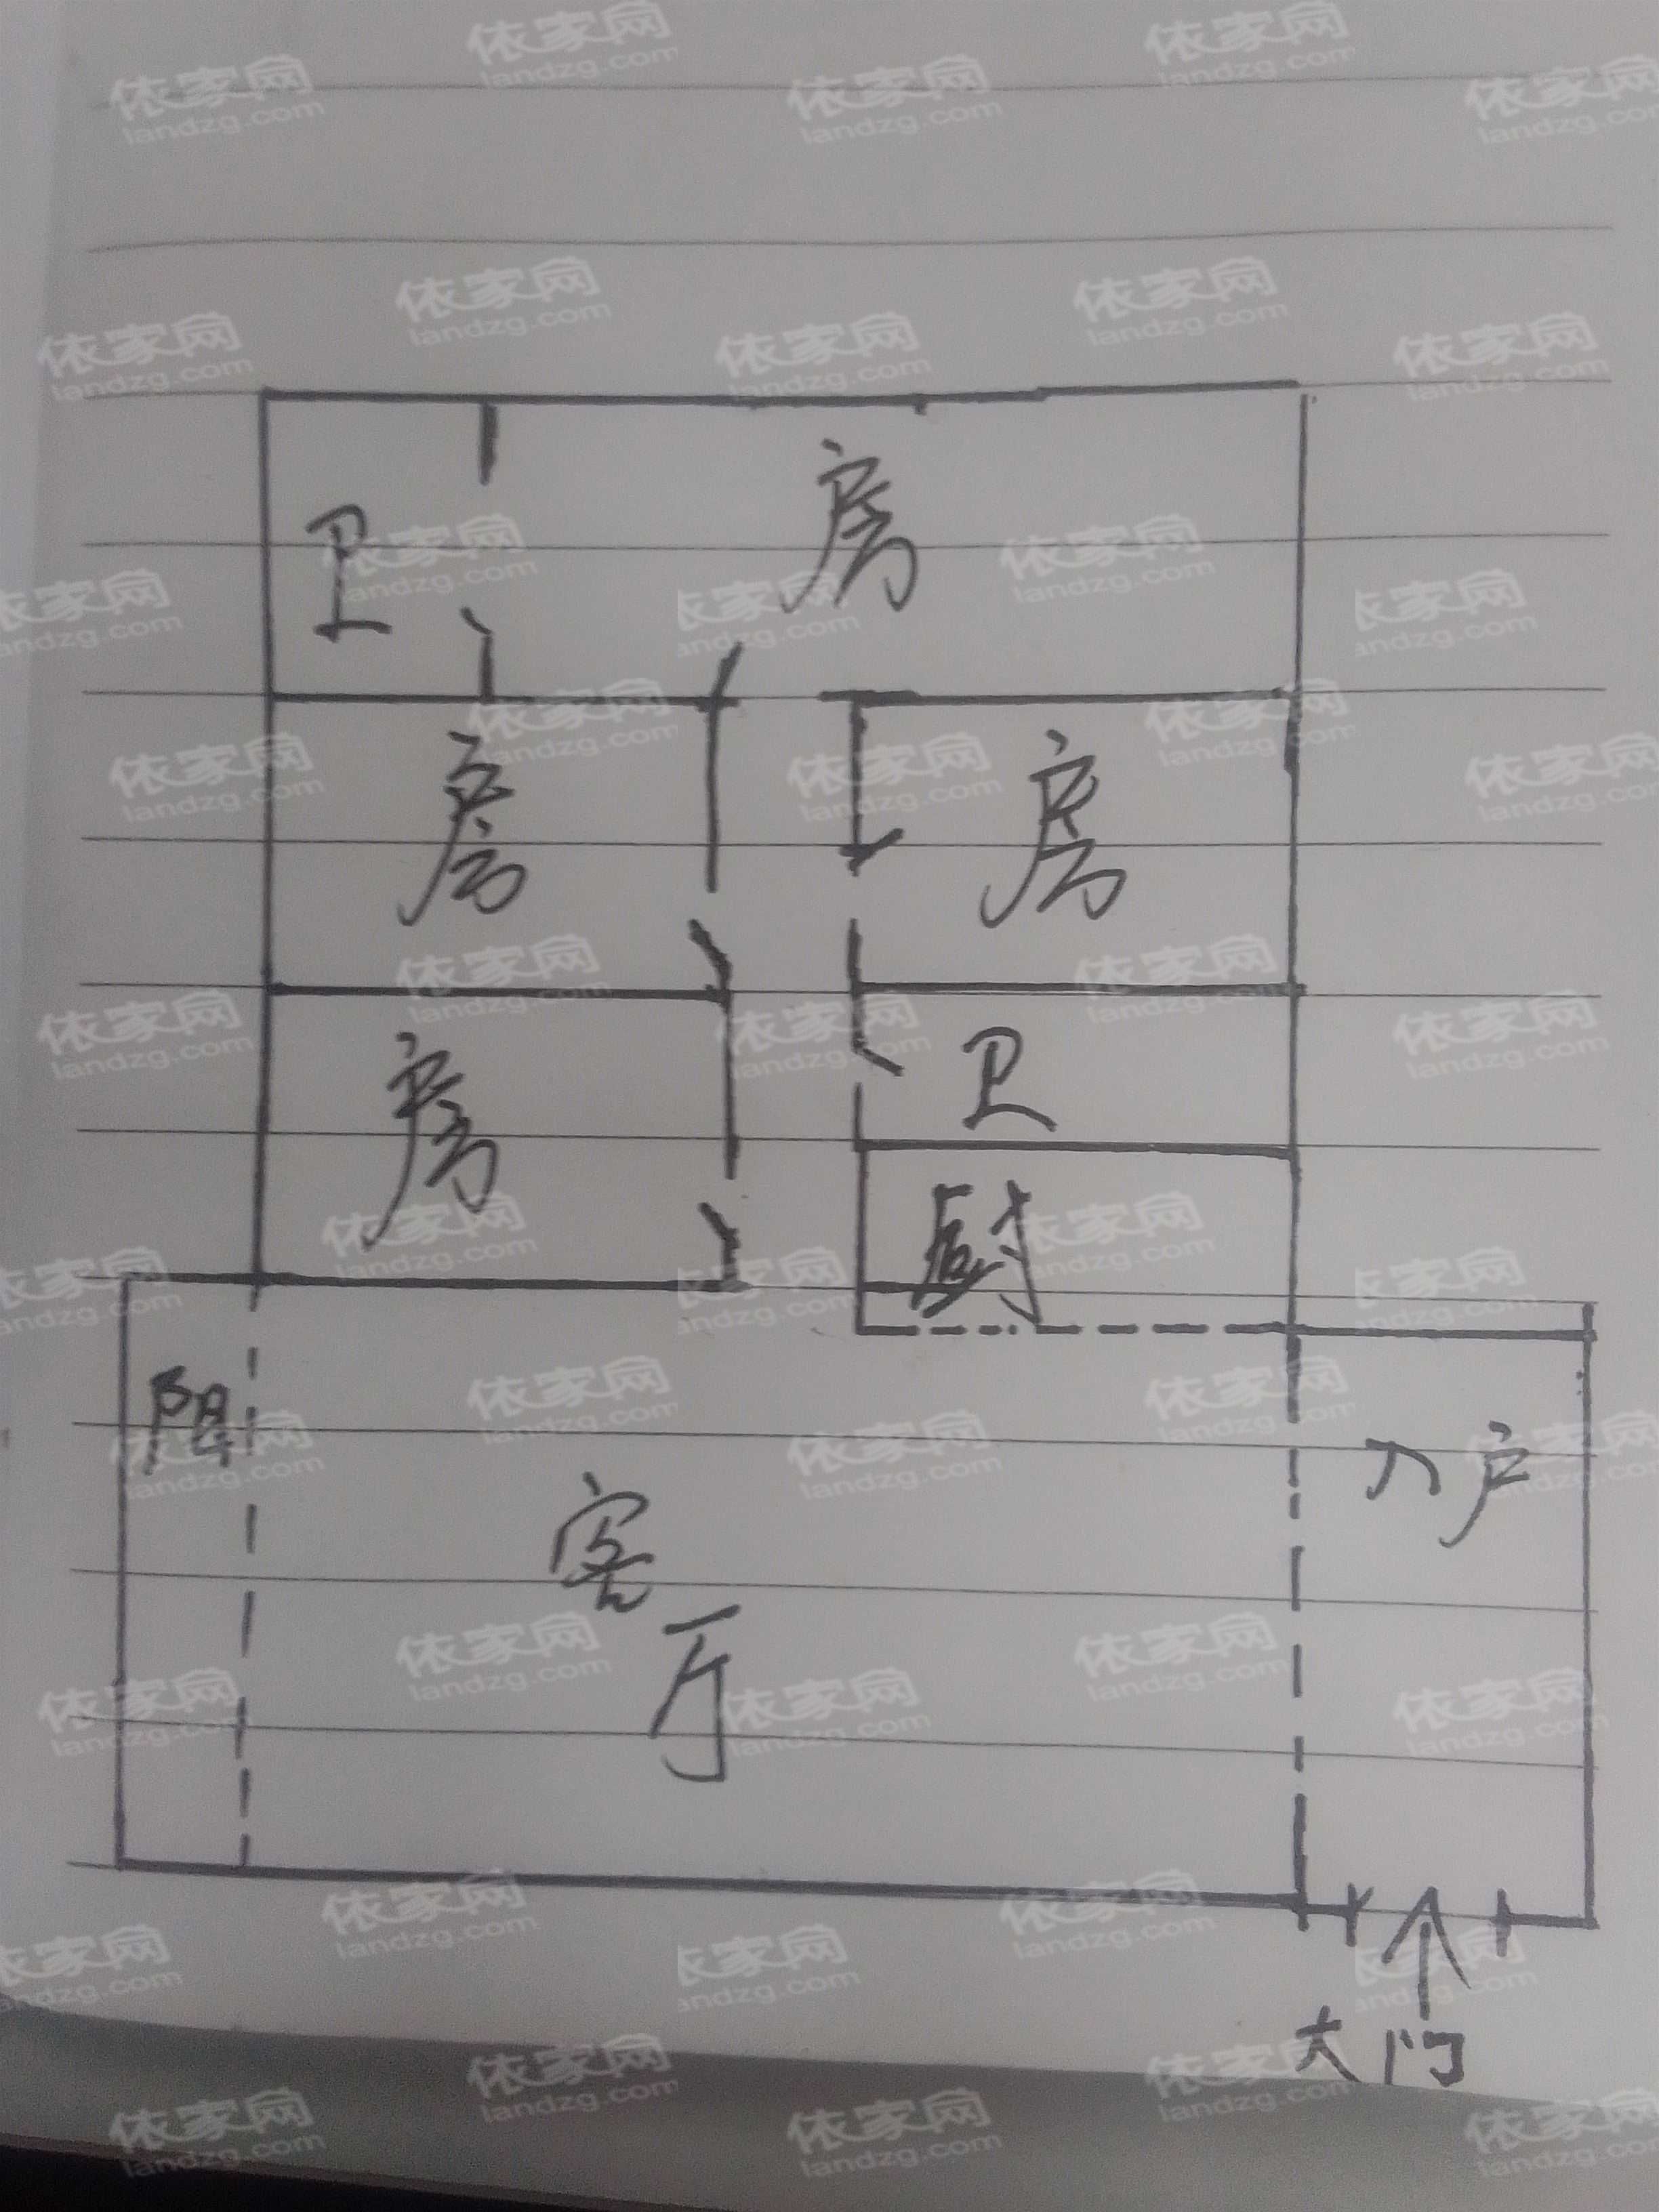 卫
房
房
房
卫
房
厨
阳
入户
客厅
大门
依家网
landzg.com